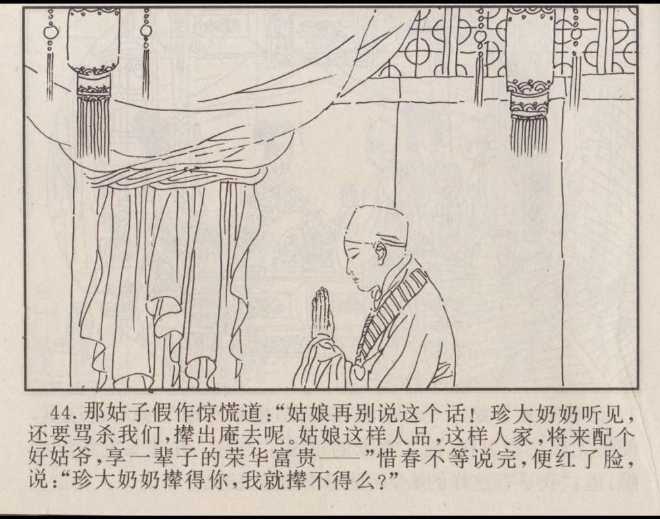 44.那姑子假作惊慌道:“姑娘再别说这个话! 珍大奶奶听见,
还要骂杀我们,撵出庵去呢。姑娘这样人品,这样人家,将来配个
好姑爷,享一辈子的荣华富贵——”惜春不等说完,便红了脸,
说:“珍大奶奶撵得你,我就撵不得么?”